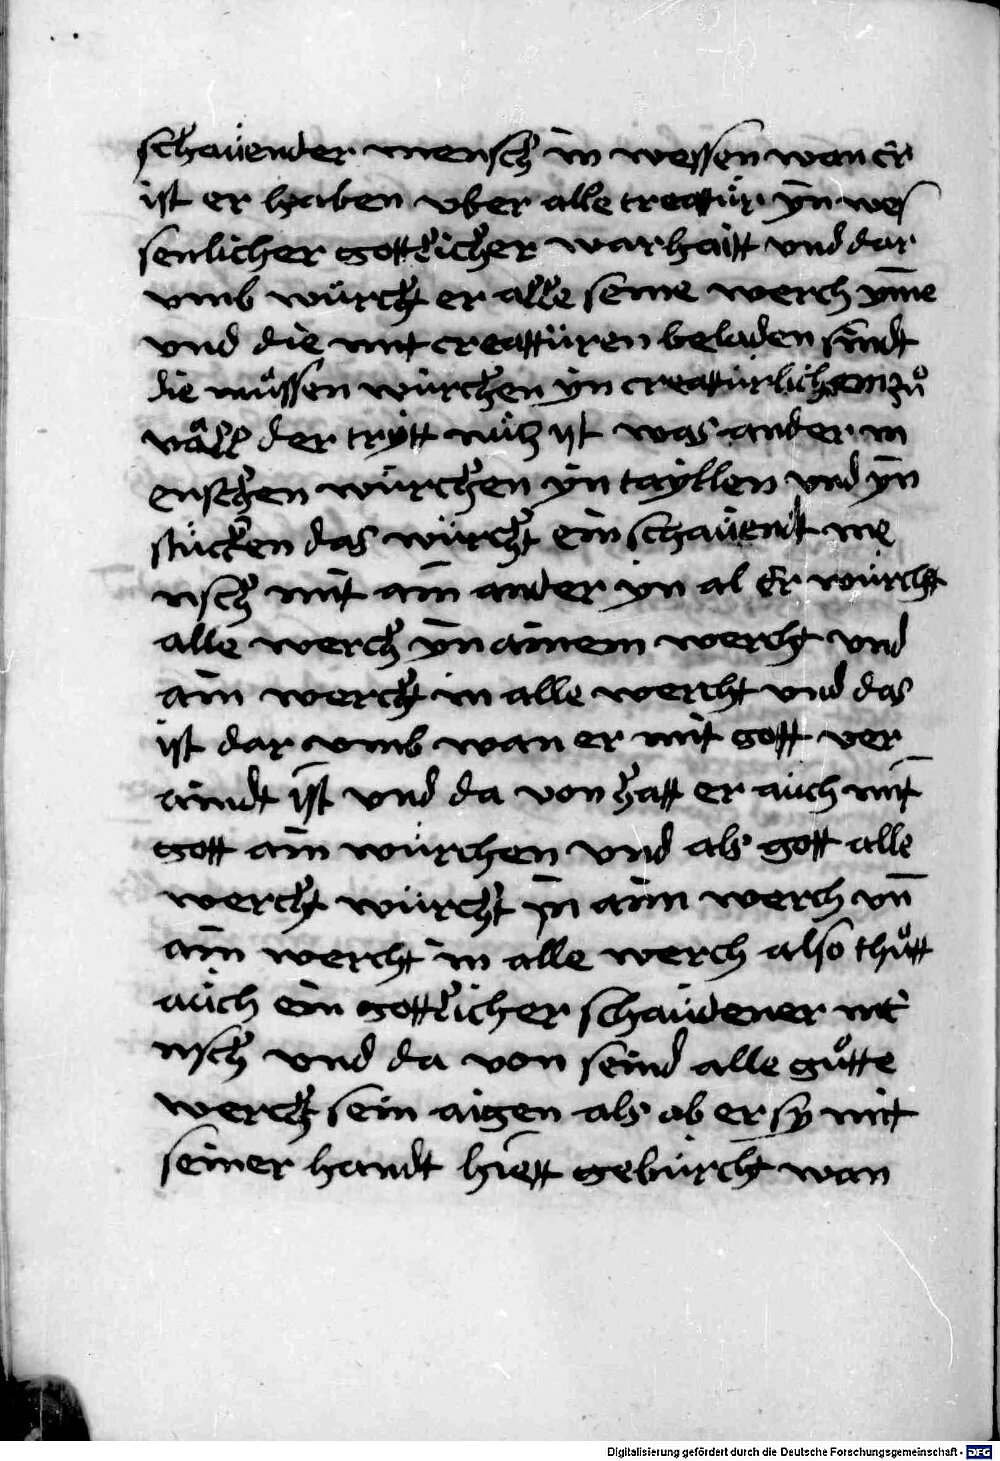 schaüender mensch in wessen wan er
ist er haben vber alle creattür yn wes
senlicher gottlicher warhaitt vnd dar
vmb würcht er alle seine werch yme
vnd die mit creattüren beladen sindt
die müssen würchen yn creattürlichem zů
väll der trytt nütz ist was ander m
enschen würchen yn tayllen vnd yn
stücken das würcht ein schaüendt me
nsch mit aim ander yn al Er würcht
alle werch yn ainem wercht vnd
ain wercht in alle wercht vnd das
ist dar vmb wan er mit gott ver
aindt ist vnd da von hatt er aüch mit
gott ain würchen vnd als gott alle
wercht würcht in aim werch vn̄
ain wercht in alle werch also thůtt
aüch ein gottlicher schaüdener me
nsch vnd da von seind alle gůtte
werch sein aigen als ob er sy mit
seiner handt hiett gebürcht wan
Digitalisierung gefördert durch die Deutsche Forschungsgemeinschaft - DFG